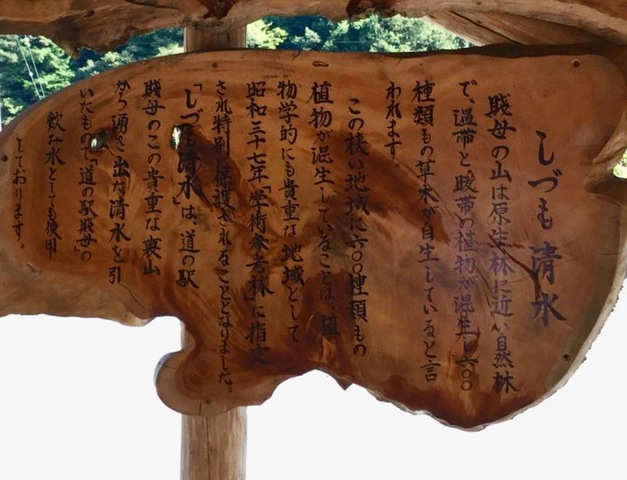 しづも清水
賤母の山は原生林に近い自然林
で、温帯と暖帯の植物が混生し六〇〇
種類もの草木が自生していると言
われます。
この狭い地域に六〇〇種類もの
植物が混生していることは、植
物学的にも貴重な地域として
昭和三十七年「学術参考林」に指定
され特別に保護されることとなりました。
「しづも清水」は、道の駅
賤母のこの貴重な裏山
から湧き出た清水を引
いたもので「道の駅賤母」の
飲み水としても使用
しております。